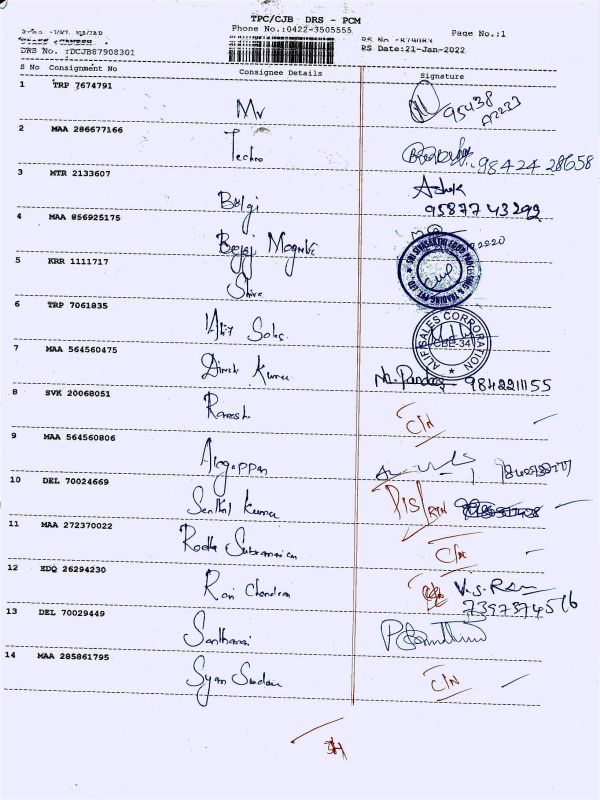 TPC/CJB DRS - PCM
Phone No.:0422-3505555
Page No.:1
DRS No. :DCJB87908301
RS No :879083
RS Date:21-Jan-2022
S No Consignment No Consignee Details Signature
1 TRP 7674791 Mr 95438
2 MAA 286677166 Techno 98424 28658
3 MTR 2133607 Balgi Ashok
95877 43292
4 MAA 856925175 Bajaj Magnetic
5 KRR 1111717 Shiva
6 TRP 7061835 Alif Sales ALIF SALES CORPORATION CBE-34
7 MAA 564560475 Dinesh Kumar M. Pandey 9842211155
8 SVK 20068051 Ramesh C/N
9 MAA 564560806 Alagappan
10 DEL 70024669 Senthil Kumar
11 MAA 272370022 Radha Subramanian C/N
12 EDQ 26294230 Ravi Chandran V.S. Ram
7397374516
13 DEL 70029449 Santhamani
14 MAA 285861795 Syam Sundar C/N